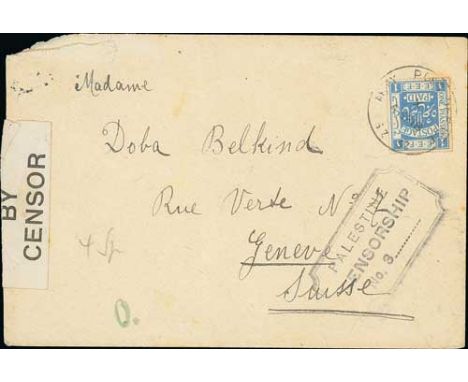 Madame
Doba Belkind
Rue Verte N
Geneve
Suisse
BY
CENSOR
PALESTINE
CENSORSHIP
No. 3
PAID
E.E.F.
4
O.